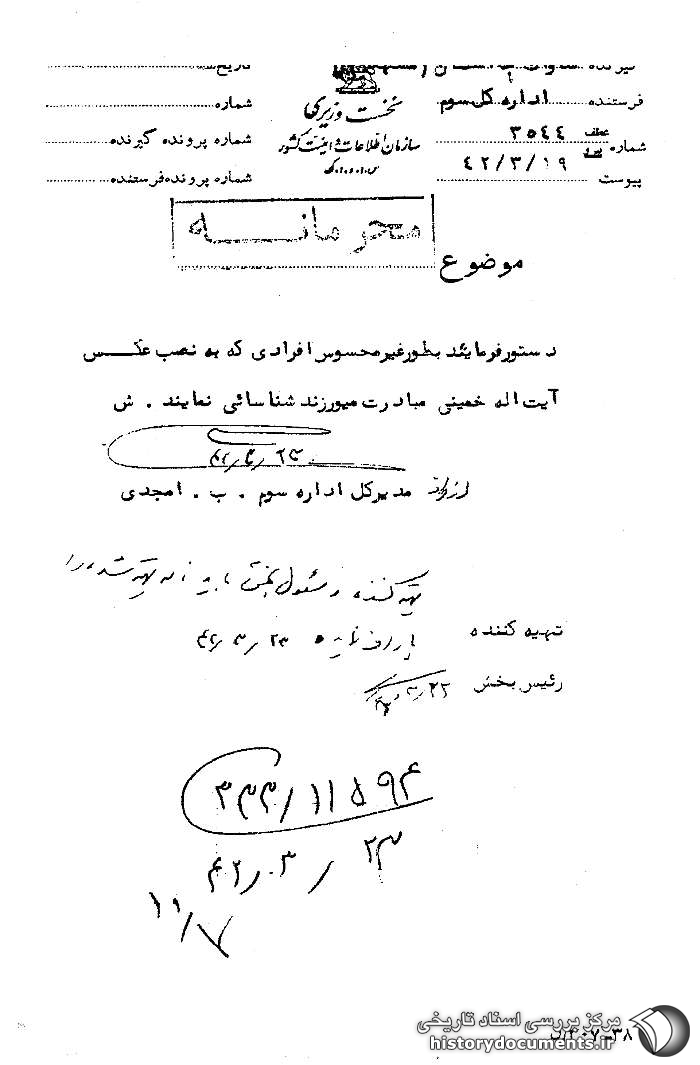 گیرنده
تاریخ
فرستنده اداره کل سوم
نخست وزیری
شماره
شماره عطف ۳۵۴۴
سازمان اطلاعات و امنیت کشور
شماره پرونده گیرنده
۴۲/۳/۱۹
س.ا.و.ا.ک
پیوست
شماره پرونده فرستنده
محرمانه
موضوع
دستور فرمایند بطور غیر محسوس افرادی که به نصب عکس
آیت اله خمینی مبادرت میورزند شناسائی نمایند . ش
۴۲/۳/۲۳
از طرف مدیر کل اداره سوم . ب . امجدی
تهیه کننده
۴۲/۳/۲۳
تهیه کننده
رئیس بخش ۳/۲۲
۳۳۳/۱۱۵۹۴
۴۲/۳/۲۳
۱۱/۷
مرکز بررسی اسناد تاریخی
historydocuments.ir